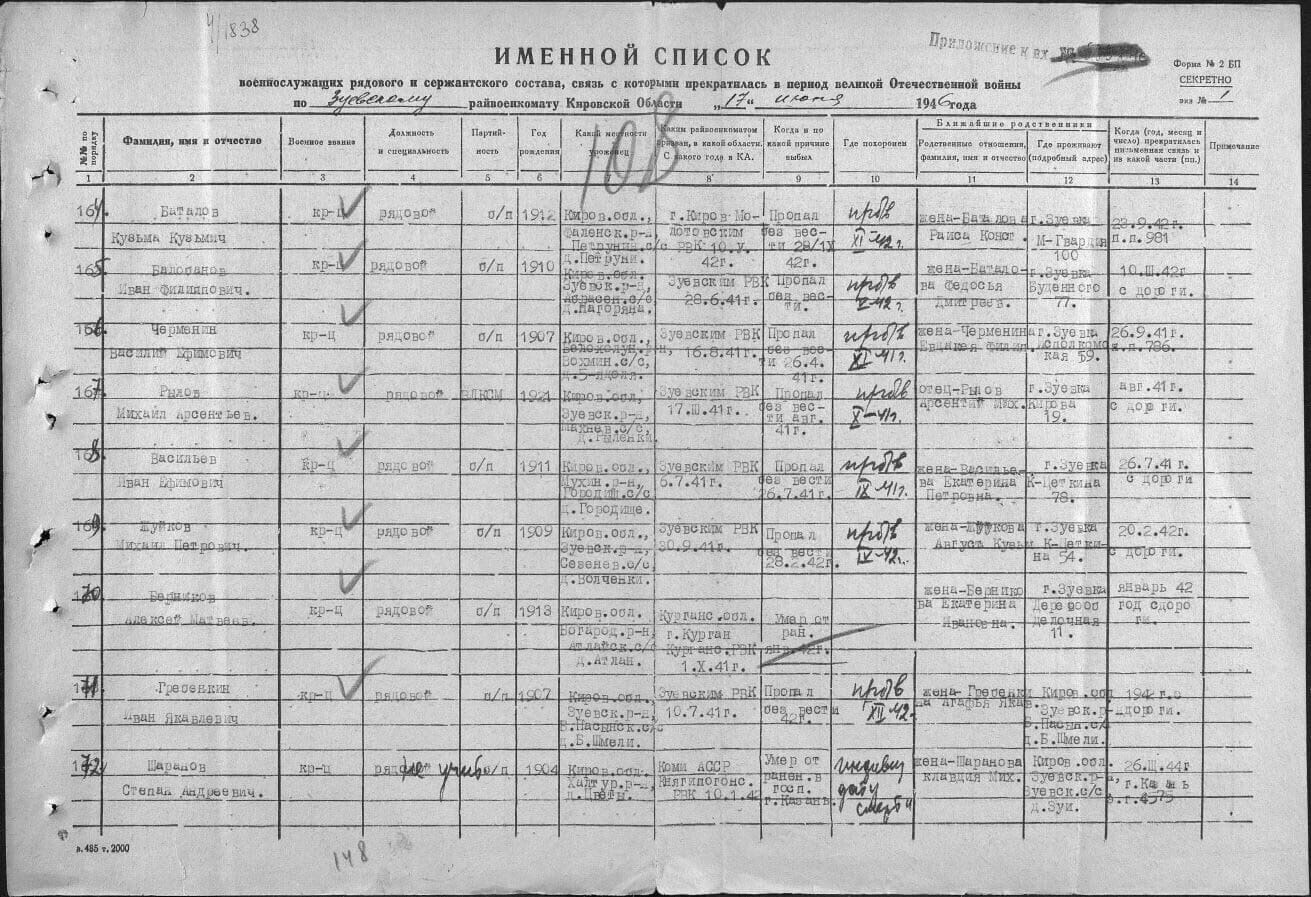 4/1838
ИМЕННОЙ СПИСОК
Приложение к вх.
Форма № 2 БП
СЕКРЕТНО
экз № 1
военнослужащих рядового и сержантского состава, связь с которыми прекратилась в период великой Отечественной войны
по Зуевскому райвоенкомату Кировской Области „17" июня 1946 года
108
№№ по порядку Фамилия, имя и отчество Военное звание Должность и специальность Партийность Год рождения Какой местности уроженец Каким райвоенкоматом призван, в какой области. С какого года в КА. Когда и по какой причине выбыл Где похоронен Ближайшие родственники Родственные отношения, фамилия, имя и отчество Где проживают (подробный адрес) Когда (год, месяц и число) прекратилась письменная связь и из какой части (пп.) Примечание
1 2 3 4 5 6 7 8 9 10 11 12 13 14
164 Баталов кр-ц рядовой б/п 1912 Киров.обл., г.Киров Мо- Пропал жена-Баталова г.Зуевка 23.9.42г.
Кузьма Кузьмич Фаленск.р-н, лотовским без вес- XI-42г. Раиса Конст. М-Гвардии п.п.981
Петрунин.с/с РВК 10.У. ти 28/IX 100
д.Петруни. 42г. 42г.
165 Балобанов кр-ц рядовой б/п 1910 Киров.обл. Зуевским РВК Пропал жена-Батало- г.Зуевка 10.Ш.42г
Иван Филиппович. Зуевск.р-н, 28.6.41г. без вес- V-42г. ва Федосья Буденного с дороги.
с/с, ти. Дмитреев. 77.
д.Нагоряна.
166 Черменин кр-ц рядовой б/п 1907 Киров.обл. Зуевским РВК Пропал жена-Черменина г.Зуевка 26.9.41г.
Василий Ефимович 16.8.41г. без вес- XI-41г. Евдакея Филип. Исполкомс- п.п.786.
Вохмин.с/с, ти 26.4. кая 59.
41г.
167 Рылов кр-ц рядовой ВЛКСМ 1921 Киров.обл, Зуевским РВК Пропал отец-Рылов г.Зуевка авг.41г.
Михаил Арсентьев. Зуевск.р-н, 17.Ш.41г. без вес- X-41г. Арсентий Мих. Кирова с дороги.
Махнев.с/с, ти авг. 19.
д.Рыленки. 41г.
168 Васильев кр-ц рядовой б/п 1911 Киров.обл., Зуевским РВК Пропал жена-Василье- г.Зуевка 26.7.41г
Иван Ефимович Мухин.р-н, 6.7.41г. без вести IX-41г. ва Екатерина К-Цеткина с дороги
Городищ.с/с 26.7.41г. Петровна. 78.
д.Городище.
169 Жуйков кр-ц рядовой б/п 1909 Киров.обл., Зуевским РВК Пропал жена-Жуйкова г.Зуевка 20.2.42г.
Михаил Петрович. Зуевск.р-н, 30.9.41г. без вести IV-42г. Августа Кузьм. К-Цетки- с дороги.
Сезенев.с/с 28.2.42г. на 54.
д.Волченки.
170 Берников кр-ц рядовой б/п 1913 Киров.обл. Курганс.обл. Умер от жена-Бернико г.Зуевка январь 42
Алексей Матвеев. Богород.р-н, г.Курган ран. ва Екатерина Деревооб год сдоро
Атлайск.с/с Курганс.РВК янв.42г. Ивановна. делочная ги.
д.Атлан. 1.X.41г. 11.
171 Гребенкин кр-ц рядовой б/п 1907 Киров.обл., Зуевским РВК Пропал жена-Гребенки Киров.обл 1942г.с
Иван Яковлевич Зуевск.р-н 10.7.41г. без вести XII 42. на Агафья Яков. Зуевск.р-н дороги.
В.Пасынск.с/с 42г. В.Пасын.с/с
д.Б.Шмели. д.Б.Шмели.
172 Шаранов кр-ц рядовой не учтб б/п 1904 Киров.обл. Коми АССР Умер от индевиу жена-Шаранова Киров.обл. 26.Ш.44г
Степан Андреевич. Халтур.р-н, Княгипогонс. ранен.в дату клавдия Мих. Зуевск.р-н, г.Казань
д.Цветы. РВК 10.1.42 госп. смерти Зуевск.с/с э.г.4575
г.Казань. д.Зуи.
в. 485 т. 2000
148